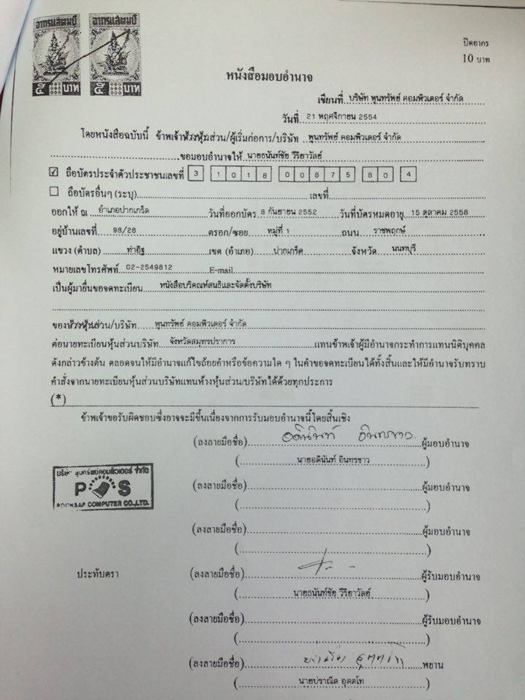 อากรแสตมป์ อากรแสตมป์
๕ บาท ๕ บาท
ปิดอากร
10 บาท
หนังสือมอบอำนาจ
เขียนที่ บริษัท พูนทรัพย์ คอมพิวเตอร์ จำกัด
วันที่ 21 พฤศจิกายน 2554
โดยหนังสือฉบับนี้ ข้าพเจ้าห้างหุ้นส่วน/ผู้เริ่มก่อการ/บริษัท พูนทรัพย์ คอมพิวเตอร์ จำกัด
ขอมอบอำนาจให้ นายธนันท์ชัย วิริยาวัลย์
☑ ถือบัตรประจำตัวประชาชนเลขที่ 3 1018 00875 80 4
☐ ถือบัตรอื่นๆ (ระบุ) เลขที่
ออกให้ ณ อำเภอปากเกร็ด วันที่ออกบัตร 8 กันยายน 2552 วันที่บัตรหมดอายุ 15 ตุลาคม 2558
อยู่บ้านเลขที่ 98/28 ตรอก/ซอย หมู่ที่ 1 ถนน ราชพฤกษ์
แขวง (ตำบล) ท่าอิฐ เขต (อำเภอ) ปากเกร็ด จังหวัด นนทบุรี
หมายเลขโทรศัพท์ 02-2549812 E-mail
เป็นผู้มายื่นขอจดทะเบียน หนังสือบริคณห์สนธิและจัดตั้งบริษัท
ของห้างหุ้นส่วน/บริษัท พูนทรัพย์ คอมพิวเตอร์ จำกัด
ต่อนายทะเบียนหุ้นส่วนบริษัท จังหวัดสมุทรปราการ แทนข้าพเจ้าผู้มีอำนาจกระทำการแทนนิติบุคคล
ดังกล่าวข้างต้น ตลอดจนให้มีอำนาจแก้ไขถ้อยคำหรือข้อความใด ๆ ในคำขอจดทะเบียนได้ทั้งสิ้นและให้มีอำนาจรับทราบ
คำสั่งจากนายทะเบียนหุ้นส่วนบริษัทแทนห้างหุ้นส่วน/บริษัทได้ด้วยทุกประการ
(*)
ข้าพเจ้าขอรับผิดชอบซึ่งอาจจะมีขึ้นเนื่องจากการรับมอบอำนาจนี้โดยสิ้นเชิง
(ลงลายมือชื่อ) ผู้มอบอำนาจ
( นายอดินันท์ อินทรขาว )
บริษัท พูนทรัพย์คอมพิวเตอร์ จำกัด
POS
POONSAP COMPUTER CO.,LTD.
(ลงลายมือชื่อ) ผู้มอบอำนาจ
( )
(ลงลายมือชื่อ) ผู้มอบอำนาจ
( )
ประทับตรา (ลงลายมือชื่อ) ผู้รับมอบอำนาจ
( นายธนันท์ชัย วิริยาวัลย์ )
(ลงลายมือชื่อ) ผู้รับมอบอำนาจ
( )
(ลงลายมือชื่อ) พยาน
( นายปราณีต อุตตโท )